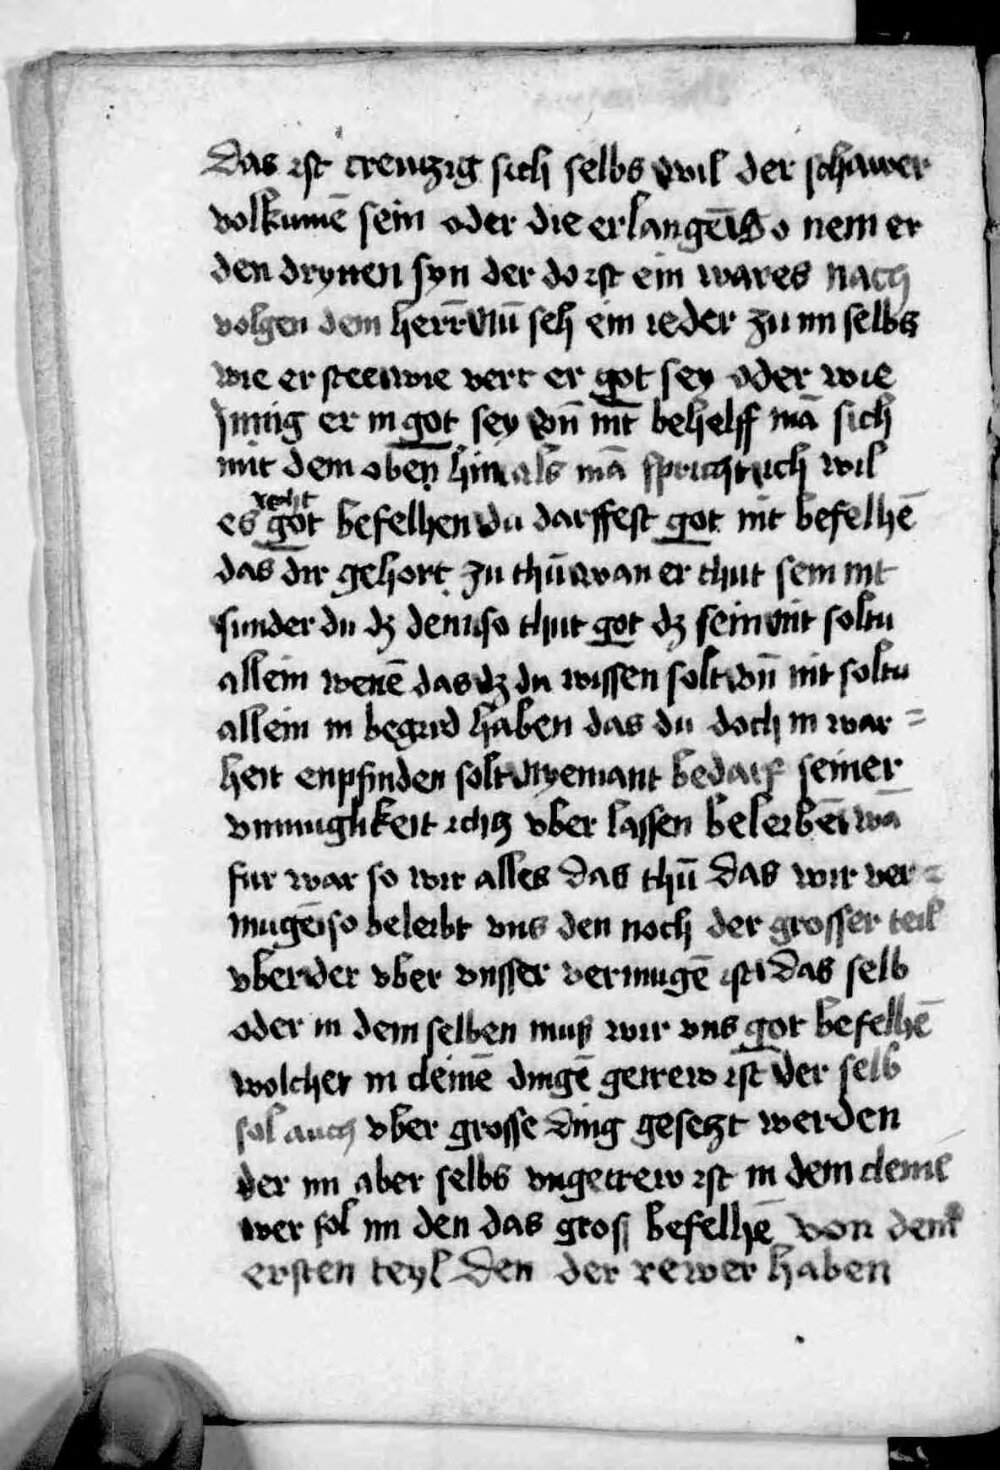 Das ist creutzig sich selbs wil der schawer
volkumē sein oder die erlangē So nem er
den drytten syn der do ist ein wares nach
volgen dem herrē Nu seh ein ieder zu im selbs
wie er stee wie verr er got sey oder wie
Jnnig er in got sey vn̄ nit behelff mā sich
mit dem oben hin als mā spricht ich wil
es recht got befelhen du darffest got nit befelhē
das dir gehort zu thū wan er thut sein nit
sunder du dz dein so thut got dz sein nit soltu
allein wenē das dz du wissen solt vn̄ nit soltu
allein in begird haben das du doch in war =
heit enpfinden solt Nyemant bedarf seiner
vnmuglikeit ichtz vber lassen beleibē wā
fur war so wir alles das thū das wir ver =
mugē so beleibt vns den noch der grosser teil
vber der vber vnsser vermugē ist das selb
oder in dem selben muß wir vns got befelhē
wolcher in cleinē dingē getrew ist der selb
sol auch vber grosse ding gesetzt werden
der im aber selbs vngetrew ist in dem cleinē
wer sol im den das gross befelhē von dem
ersten teyl den der rewer haben